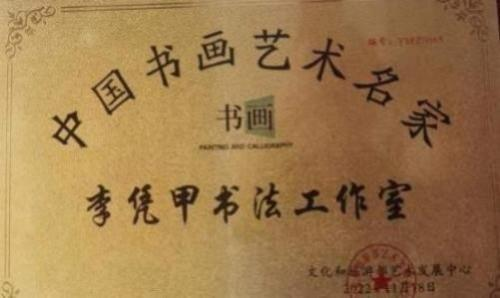 编号:
中国书画艺术名家
书画
PAINTING AND CALLIGRAPHY
李凭甲书法工作室
文化和旅游部艺术发展中心
2022年11月18日